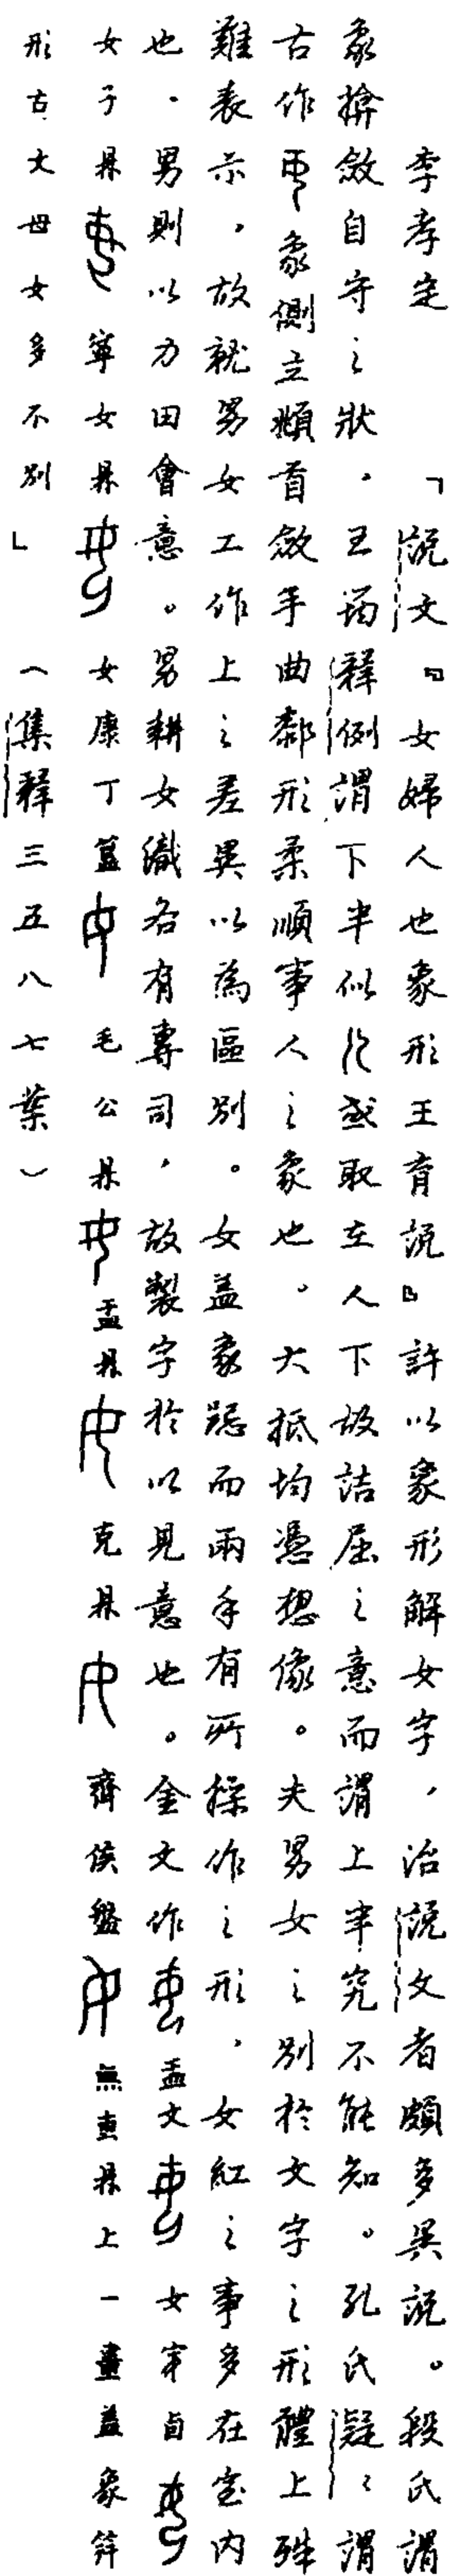 李孝定　「說文『女婦人也象形王育說』許以象形解女字，治說文者頗多異說。段氏謂
象揜斂自守之狀，王筠釋例謂下半似，或取在人下故詰屈之意而謂上半究不能知。孔氏疑疑謂
古作，象側立頫首斂手曲厀形柔順事人之象也。大抵均憑想像。夫男女之別於文字之形體上殊
難表示，故就男女工作上之差異以為區別。女蓋象跽而兩手有所操作之形，女紅之事多在室內
也，男則以力田會意。男耕女織各有專司，故製字於以見意也。金文作盂文女宰卣
女子鼎甯女鼎女康丁簋毛公鼎盂鼎克鼎齊侯盤無叀鼎上一畫蓋象笄
形古文母女多不別」（集釋三五八七葉）